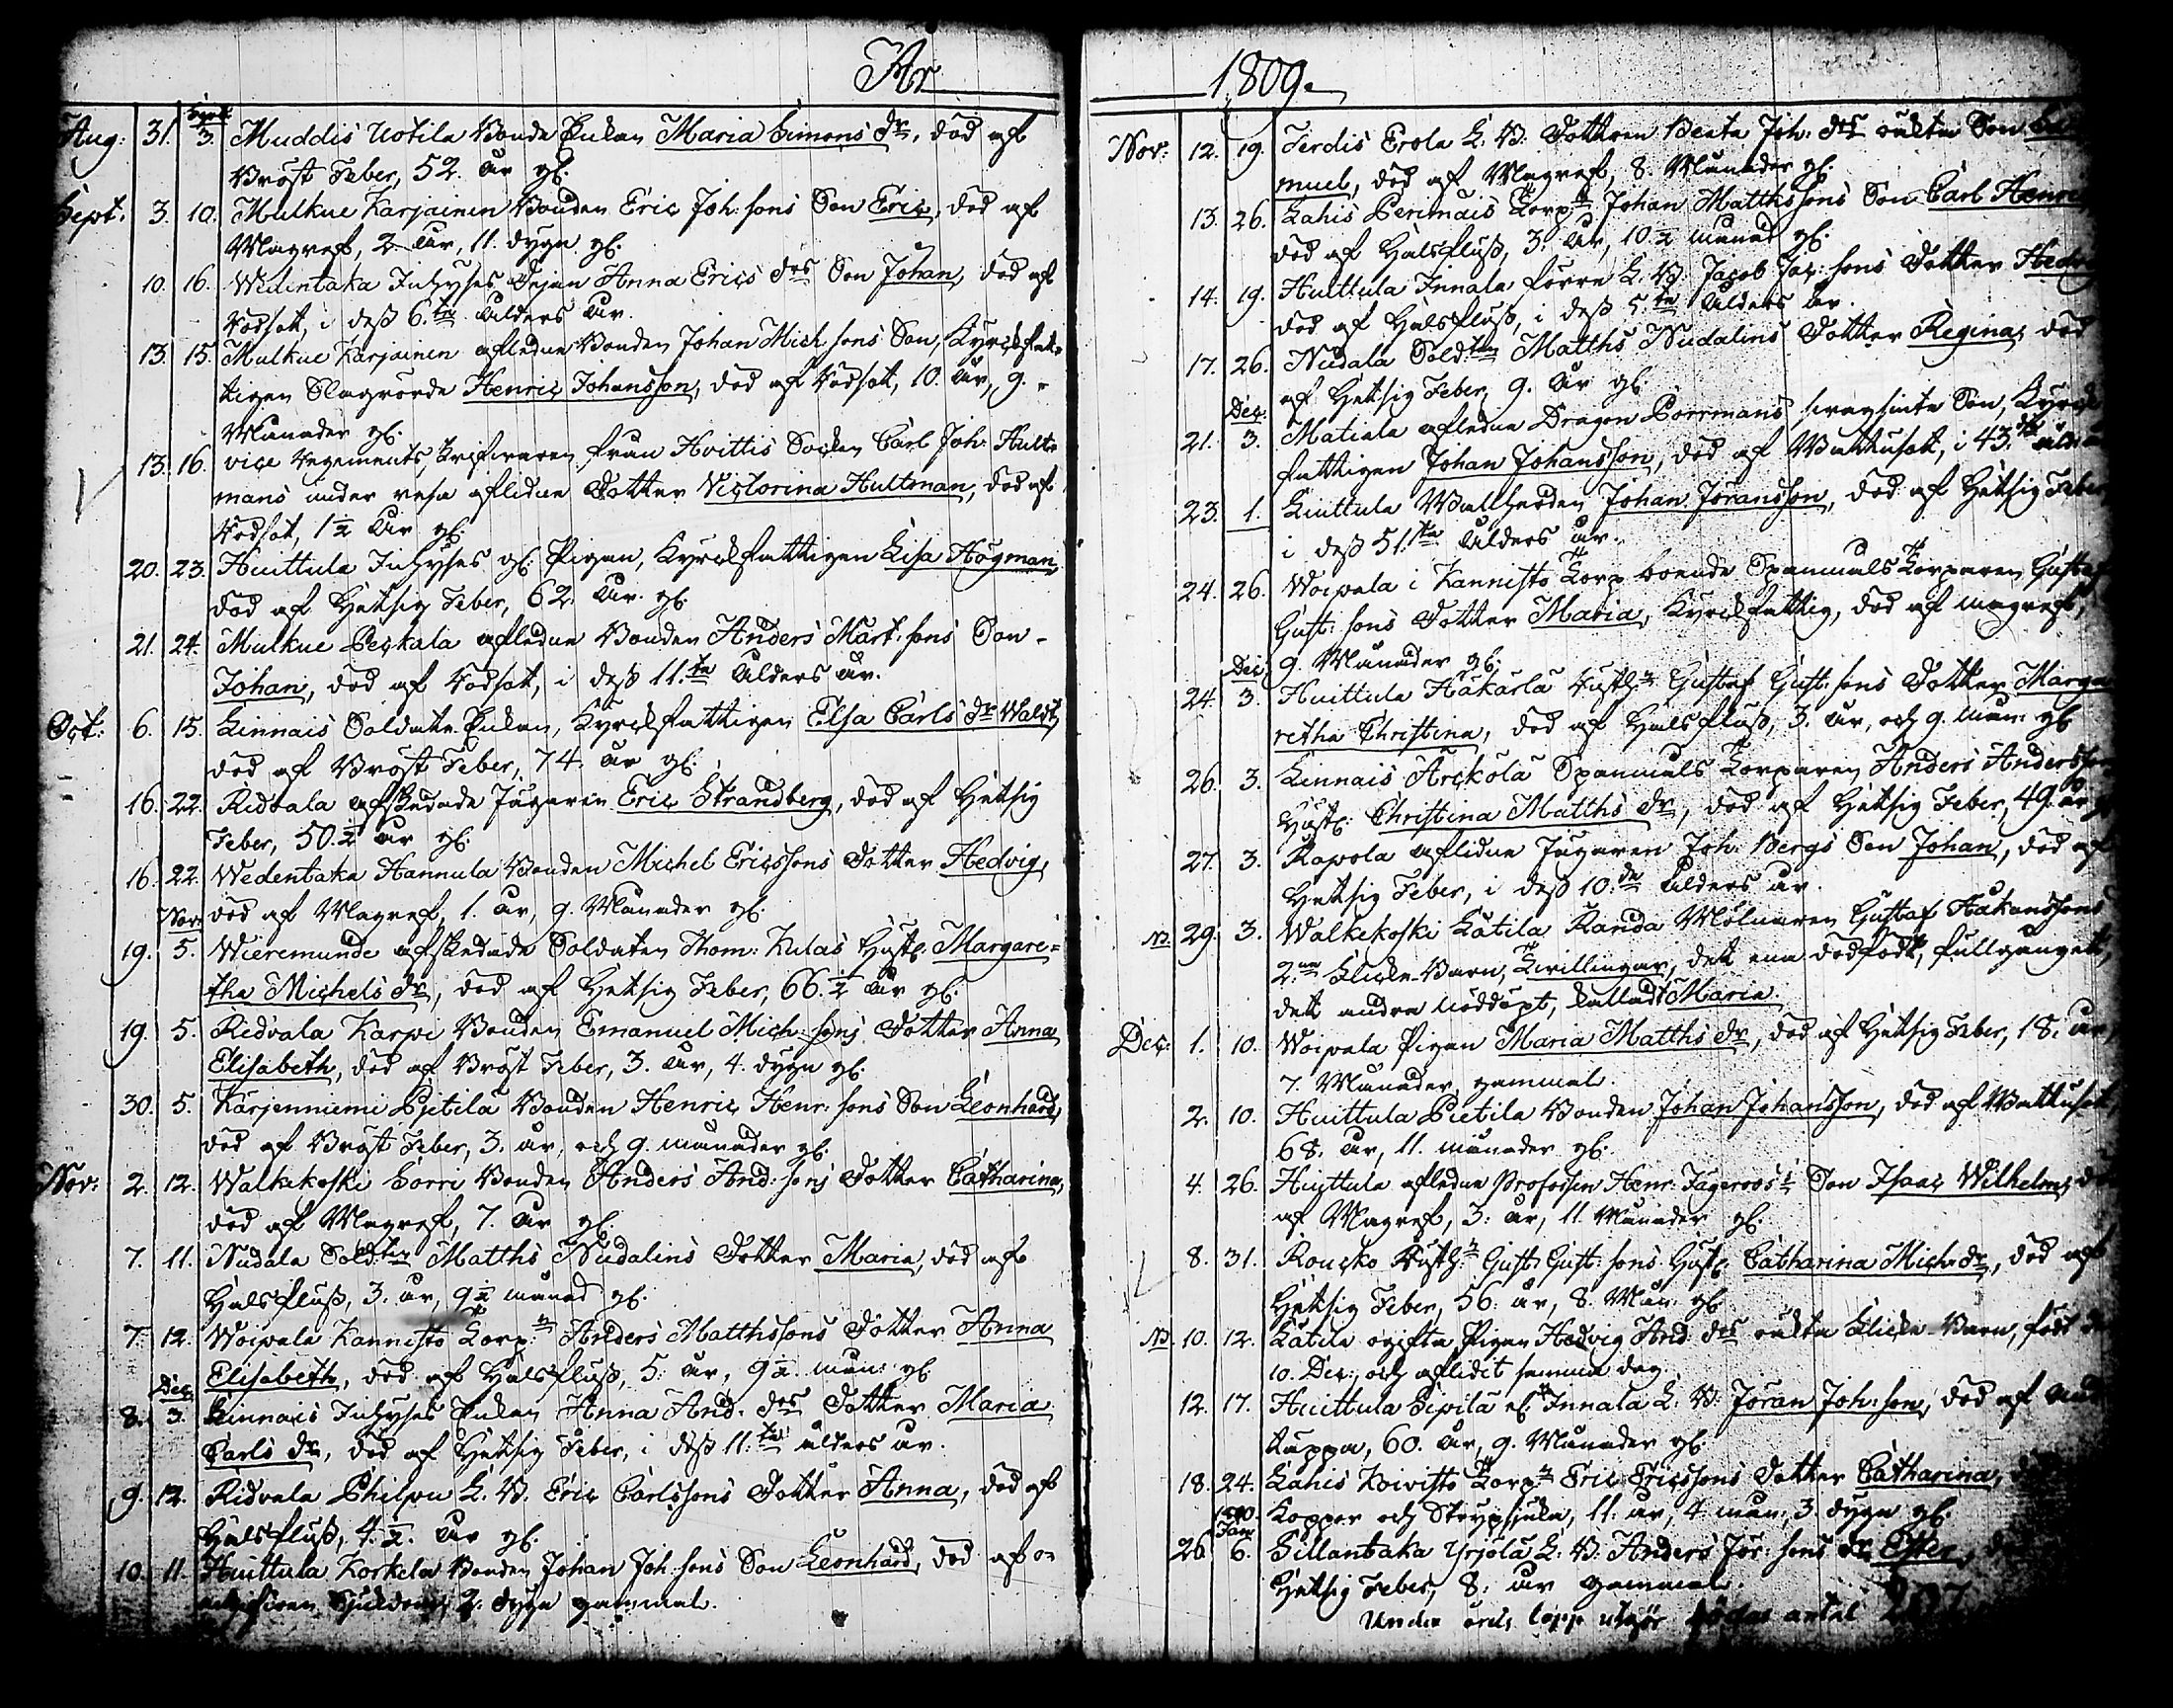 År
Sept:
Aug: 31. 3. Muddis Uotila Bonde Enkan Maria Simons dr, död af
Bröst Feber, 52. år gl.
Sept: 3. 10. Mulkue Karjainen Bonden Eric Joh: sons Son Eric, död af
Magref, 2. år, 11. dygn gl.
10. 16. Wedentaka Inhyses Pigan Anna Erics drs Son Johan, död af
Rödsot, i dess 6.te ålders år.
13. 15. Mulkue Karjainen afledne Bonden Johan Mich: sons Son, Kyrckfat-
tigen Slagrörde Henric Johansson, död af Rödsot, 10. år, 9.
Månader gl.
13. 16. vice Regements Skrifvaren från Hvittis Socken Carl Joh: Hult-
mans under resa aflidne Dotter Victorina Hultman, död af
Rödsot, 1½ år gl.
20. 23. Huittula Inhyses gl: Pigan, Kyrckfattigen Lisa Högman,
död af Hetsig Feber, 62. år gl.
21. 24. Mulkue Peckala afledne Bonden Anders Mårt: sons Son
Johan, död af Rödsot, i dess 11.te ålders år.
Oct: 6. 15. Linnais Soldate Enkan, Kyrckfattigen Elsa Carls dr Waldt,
död af Bröst Feber, 74. år gl.
16. 22. Ridvala afskedade Jägaren Eric Strandberg, död af Hetsig
Feber, 50.½ år gl.
16. 22. Wedentaka Hannula Bonden Michel Ericssons Dotter Hedvig,
Nov: död af Magref, 1. år, 9. Månader gl.
19. 5. Wieremunde afskedade Soldaten Thom: Kulas Hust: Margare-
tha Michels dr, död af Hetsig Feber, 66.½ år gl.
19. 5. Ridvala Karpi Bonden Emanuel Mich: sons Dotter Anna
Elisabeth, död af Bröst Feber, 3. år, 4. dygn gl.
30. 5. Kärjenniemi Pjetilä Bonden Henric Henr: sons Son Leonhard,
död af Bröst Feber, 3. år, och 9. månader gl.
Nov: 2. 12. Walkekoski Sorri Bonden Anders And: sons Dotter Catharina,
död af Magref, 7. år gl.
7. 11. Nudala Sold:ten Matths Nudalins Dotter Maria, död af
Halsfluss, 3. år, 9½ månad gl.
7. 12. Woipala Kannisto Torp:n Anders Matthssons Dotter Anna
Elisabeth, död af Halsfluss, 5. år, 9½ mån: gl.
Dec:
8. 3. Linnais Inhyses Enkan Anna And: drs Dotter Maria
Carls dr, död af Hetsig Feber, i dess 11.te ålders år.
9. 12. Ridvala Philpu L. B. Eric Carlssons Dotter Anna, död af
Halsfluss, 4.½. år gl.
10. 11. Huittula Korkela Bonden Johan Joh: sons Son Leonhard, död af o-
angifven Sjukdom, 2. dygn gammal.
1809.
Nov: 12. 19. Terdis Erola L: B: Dottren Beata Joh: drs oäkta Son Sa
muel, död af Magref, 8. Månader gl.
13. 26. Lahis Perimäis Torp:n Johan Matthssons Son Carl Henric
död af Halsfluss, 3. år, 10.½ månad gl.
14. 19. Huittula Innala förra L: B: Jacob Jac: sons Dotter Hedvig
död af Halsfluss, i dess 5.te ålders år.
17. 26. Nudala Sold:ten Matths Nudalins Dotter Regina, död
af Hetsig Feber, 9. år gl.
Dec:
21. 3. Matiala afledne Dragon Borrmans Son, Kyrck
fattigen Johan Johansson, död af Wattusot, i 43.
23. 1. Liuttula Wallherden Johan Jöransson, död af Hetsig Feber
i dess 51.ta ålders år.
24. 26. Woipala i Kannisto Torp boende Spannmåls Torparen Gustaf
Gust: sons Dotter Maria, Kyrckfattig, död af magref,
Dec: 9. Månader gl.
24. 3. Huittula Håkarla Rusth:n Gustaf Gust: sons Dotter Marga
retha Christina, död af Halsfluss, 3. år, och 9. mån: gl.
26. 3. Linnais Arckola Spannmåls Torparen Anders Andersson
Hust: Christina Matths dr, död af Hetsig Feber, 49. år
27. 3. Rapola aflidne Jägaren Joh: Bergs Son Johan, död af
Hetsig Feber, i dess 10:de ålders år.
N3. 29. 3. Walkekoski Latila Randa Mölnaren Gustaf Håkanssons
2:ne Flicke-Barn, Tvillingar, det ena dödfödt, fullgånget,
det andra nöddöpt, kalladt Maria.
Dec: 1. 10. Woipala Pigan Maria Matths dr, död af Hetsig Feber, 18. år,
7. Månader gammal.
2. 10. Huittula Pietila Bonden Johan Johansson, död af Wattusot,
68. år, 11. månader gl.
4. 26. Huittula afledne Professen Henr: Jägeroos's Son Isaac Wilhelm,
af Magref, 3: år, 11. Månader gl.
8. 31. Roucko Rusth:n Gust: Gust: sons Hust: Catharina Mich: dr, död af
Hetsig Feber, 56. år, 8. Mån: gl.
N3. 10. 12. Latila ogifta Pigan Hedvig And: drs oäkta Flicke-Barn, född den
10. Dec:, och aflidit samma dag.
12. 17. Huittula Sipilä el: Innala L: B: Jöran Joh: son, död af And
täppa, 60. år, 9. Månader gl.
18. 24. Lahis Koivisto Torp:n Eric Ericssons Dotter Catharina,
1810. Koppor och Strypsjuka, 11. år, 4. mån:, 3. dygn gl.
Jan:
26. 6. Sillantaka Yrjölä L: B: Anders Jör: sons dr Ester,
Hetsig Feber, 8. år gammal.
Under årets lopp utgör dödas antal